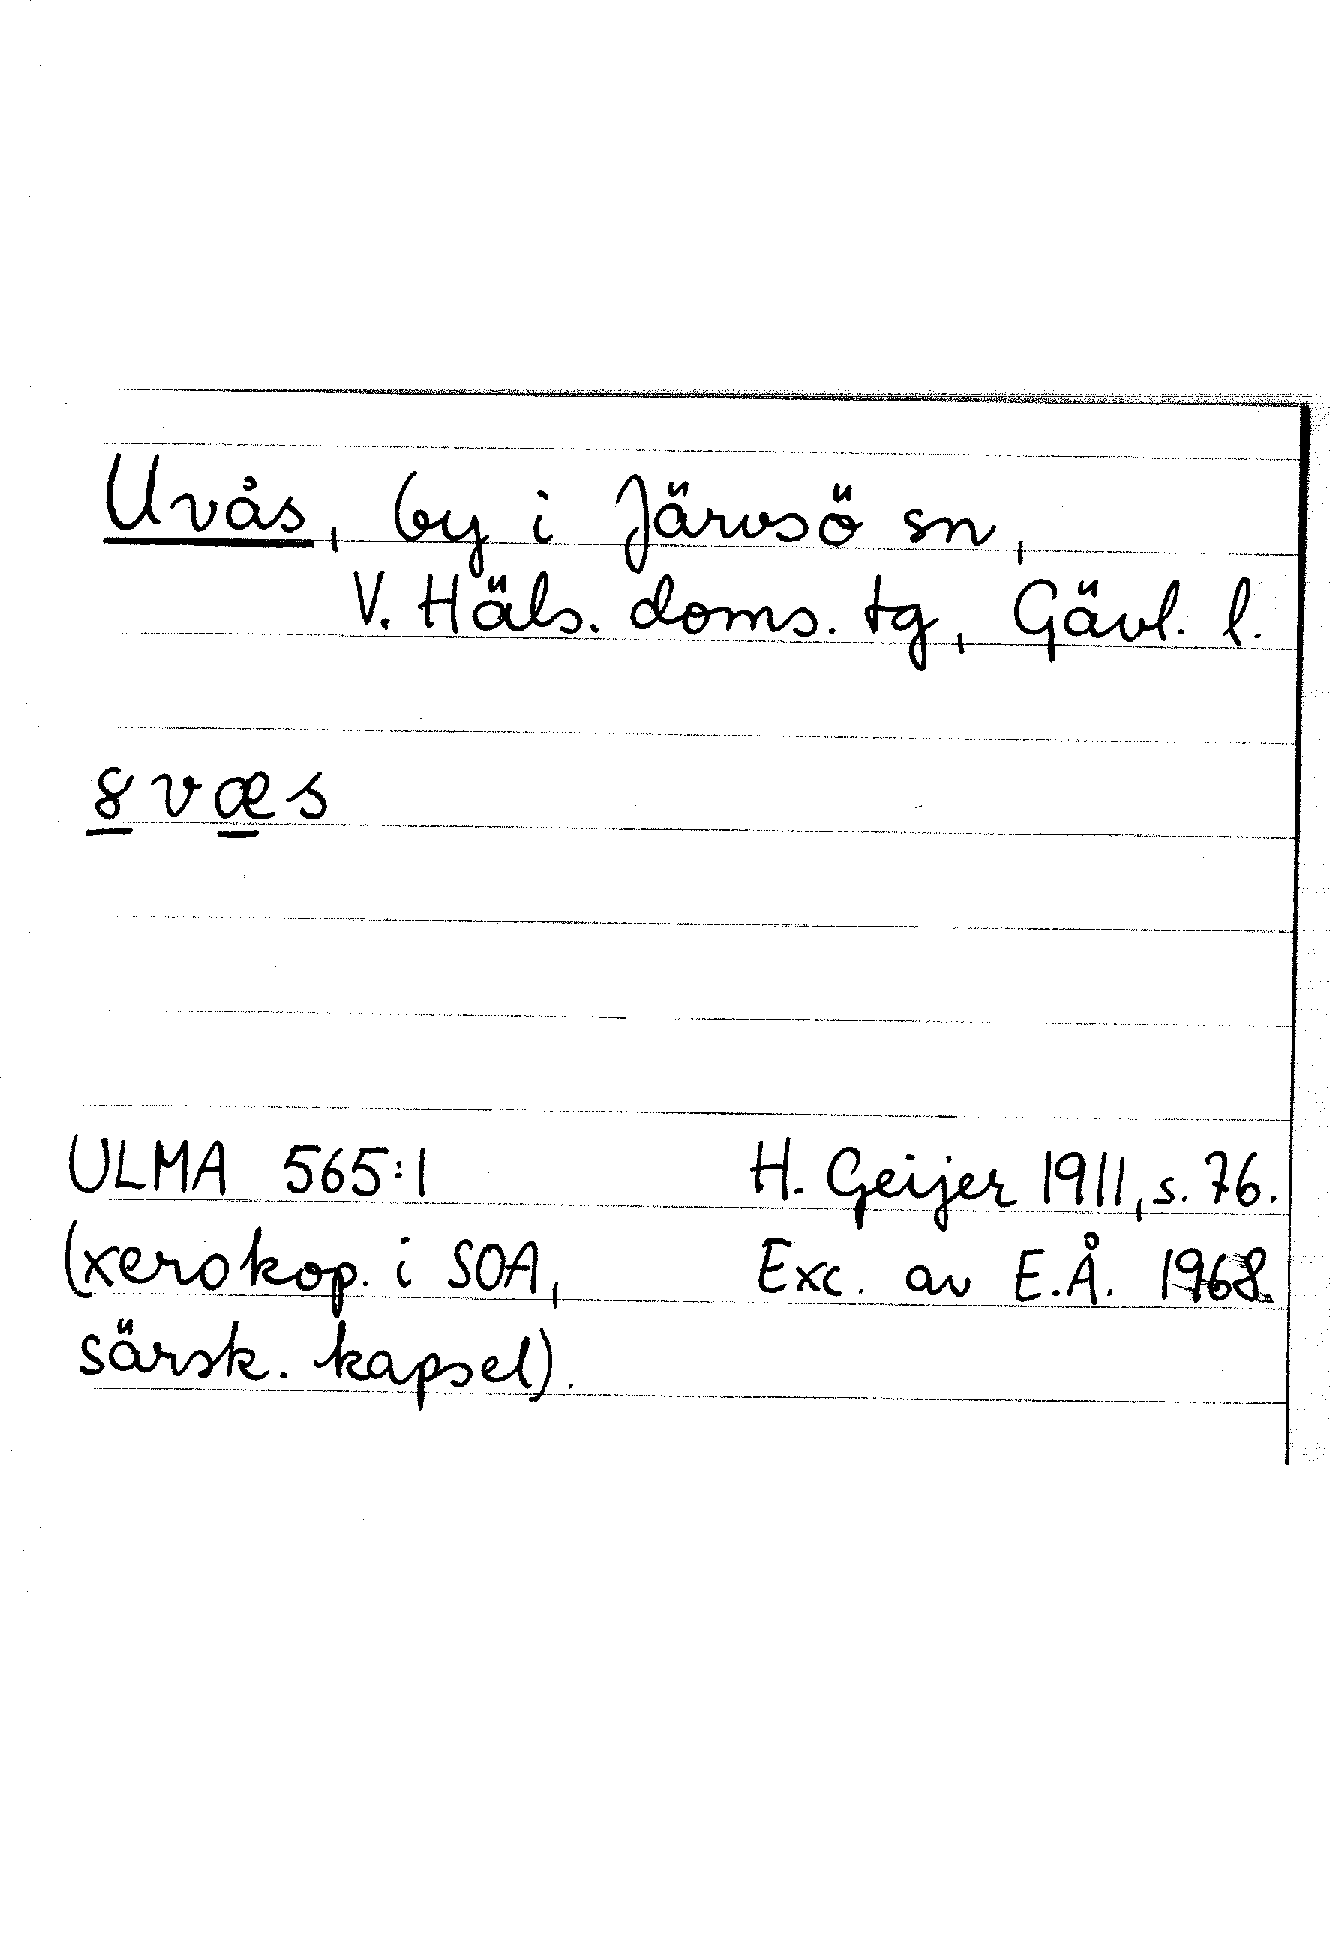 Uvås, by i Järvsö sn,
V. Häls. doms. tg, Gävl. l.
8 v æ s
ULMA 565:1 H. Geijer 1911, s. 76.
(xerokop. i SOA, Exc. av E.Å. 1968.
särsk. kapsel).